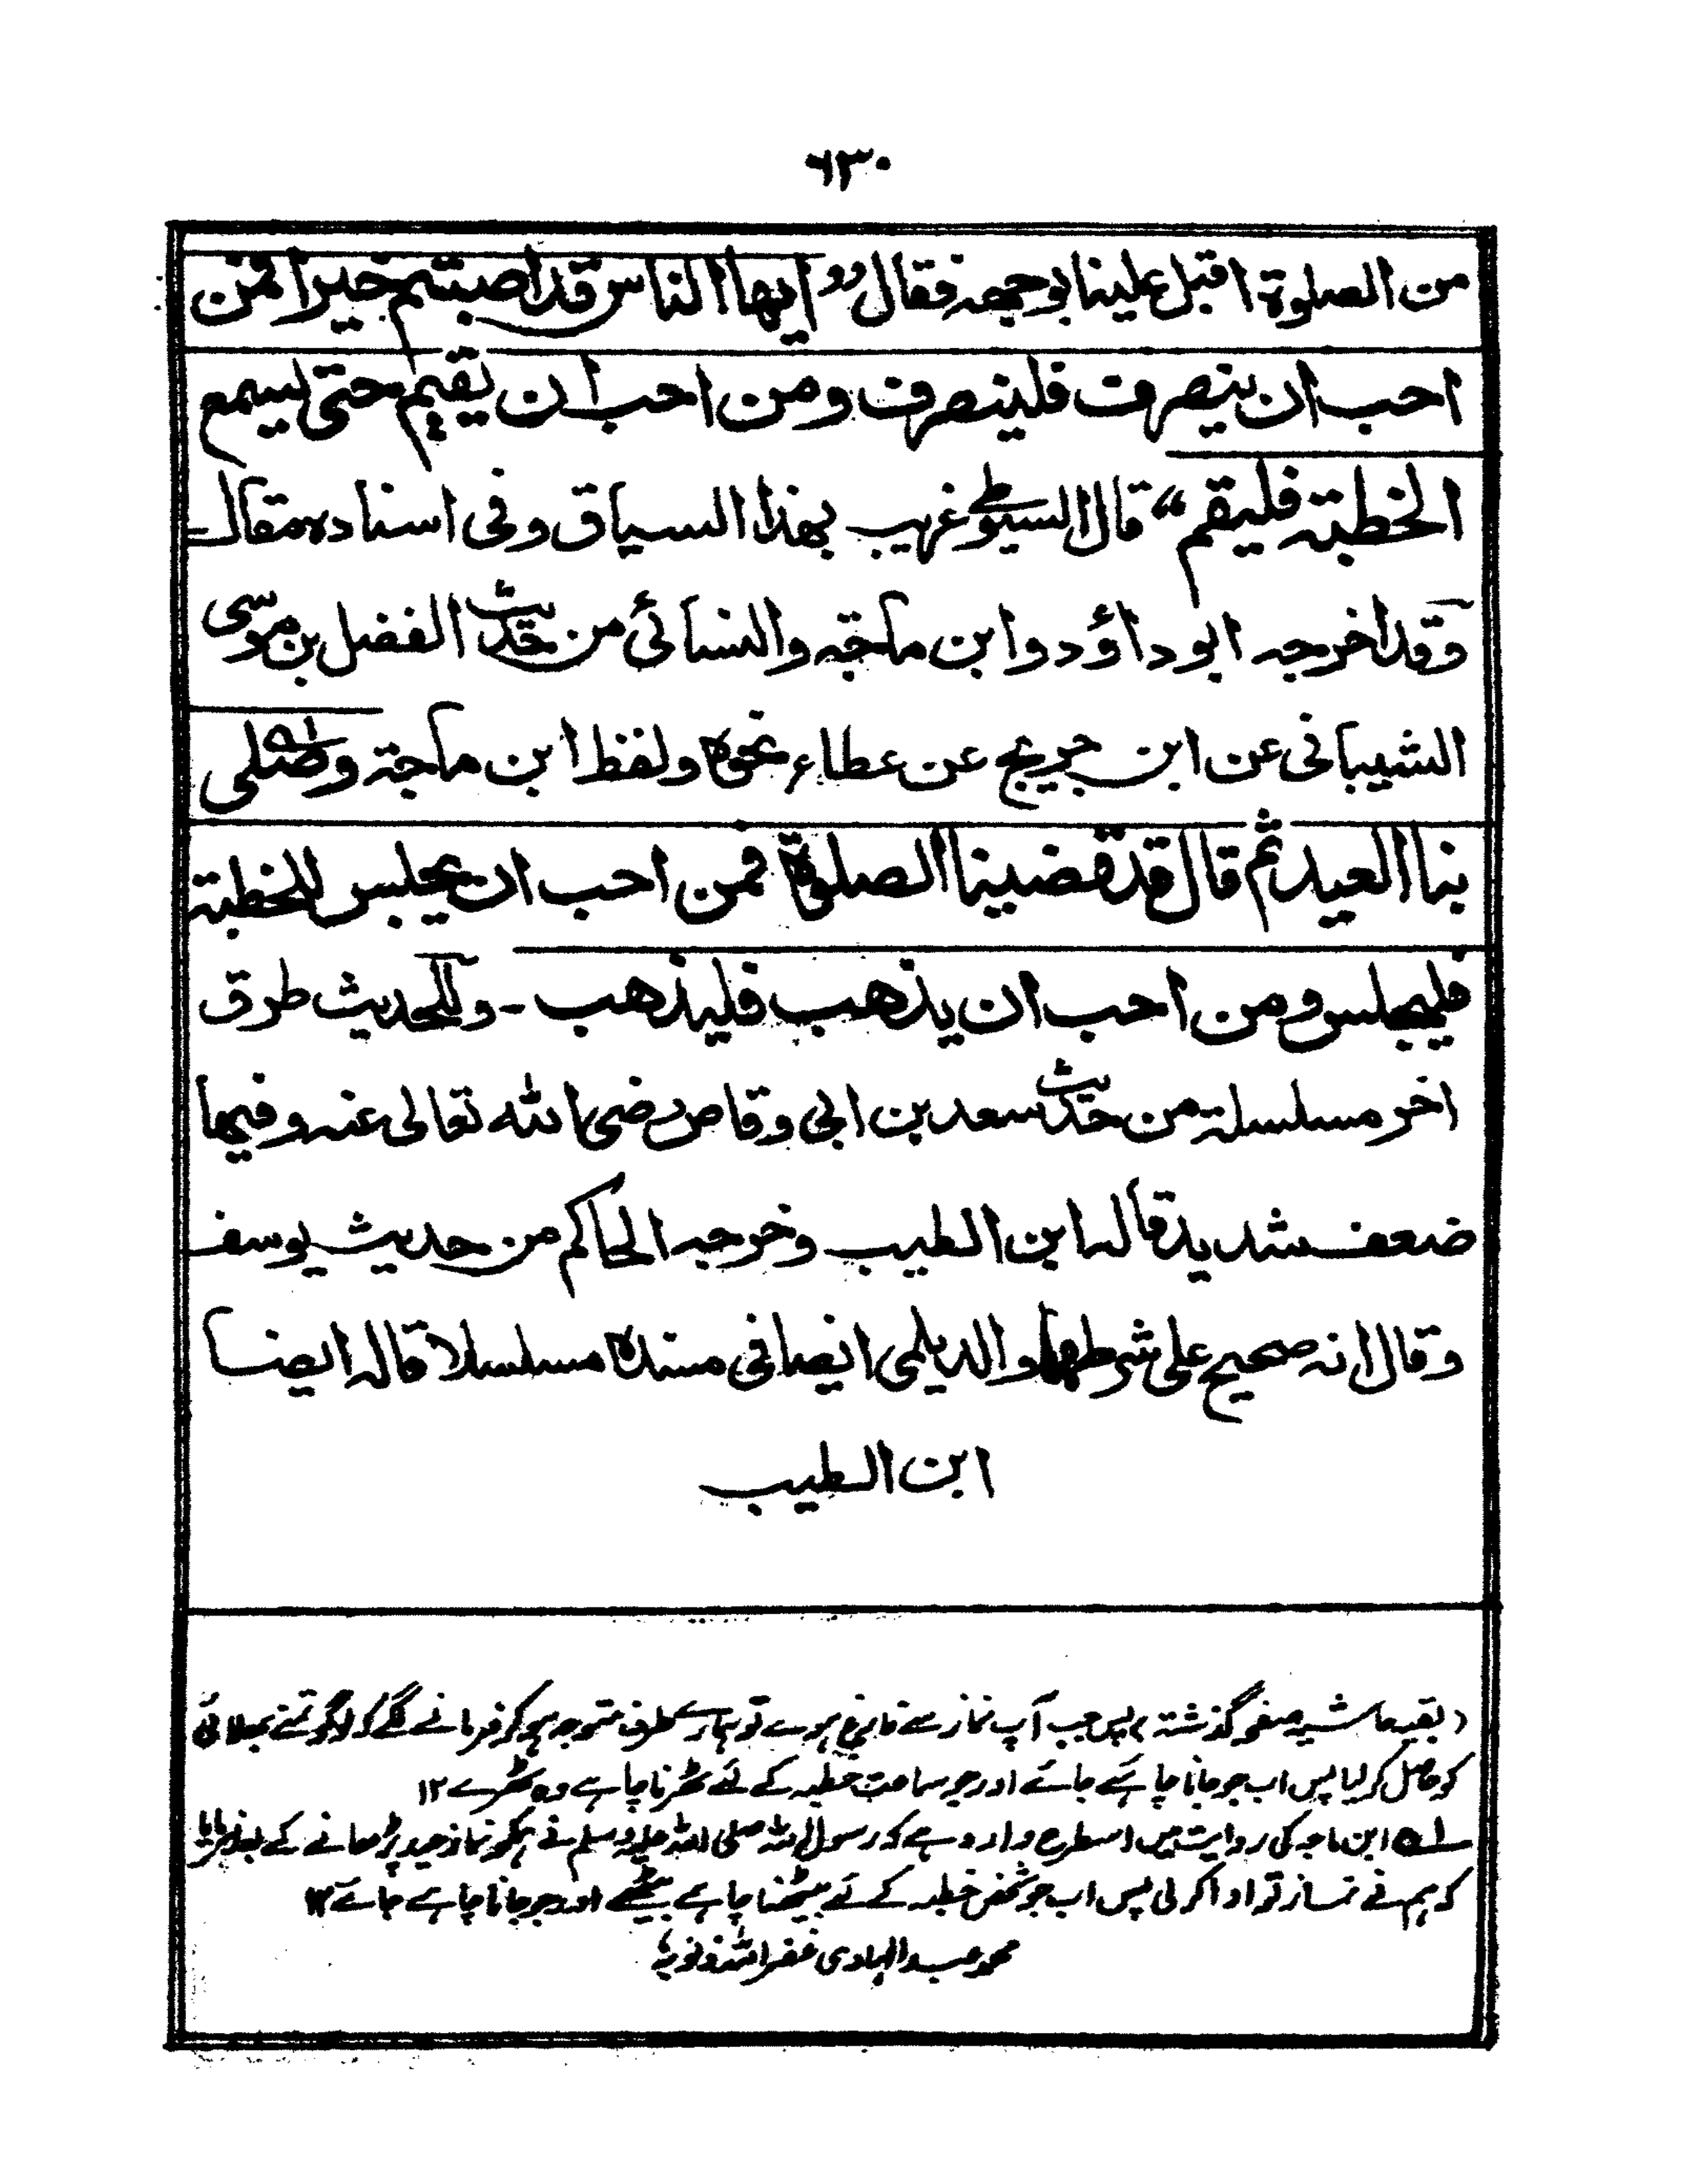 ٦٣٠
من الصلوة اقبل علينا بوجهه فقال “ ايها الناس قد اصبتم خيرا فمن
احب ان ينصرف فلينصرف ومن احب ان يقيم حتى يسمع
الخطبة فليقم “ قال السيوطي غريب بهذا السياق وفي اسناده مقال
وقد اخرجه ابو داؤد وابن ماجه والنسائي من حديث الفضل بن موسى
الشيباني عن ابن جريج عن عطاء نحوه ولفظ ابن ماجة وصلى
بنا العيد ثم قال قد قضينا الصلوة فمن احب ان يجلس للخطبة
فليجلس ومن احب ان يذهب فليذهب - وللحديث طرق
اخر مسلسلة من حديث سعد بن ابي وقاص رضى الله تعالى عنه وفيها
ضعف شديد قاله ابن الطيب وخرجه الحاكم من حديث يوسف
وقال انه صحيح على شرطهما والديلمي ايضا في مسنده مسلسلا قاله ايضا
ابن الطيب
(بقیہ حاشیہ صفحہ گذشتہ) پس جب آپ نماز سے فارغ ہوے تو ہمارے طرف متوجہ ہوکر فرمانے لگے کہ لوگو تمنے بھلائی
کو حاصل کرلیا پس اب جو جانا چاہے جائے اور جو سماعت خطبہ کے لئے ٹھرنا چاہے وہ ٹھرے ١٢
لہ ابن ماجہ کی روایت میں اسطرح وارد ہے کہ رسول اللہ صلی اللہ علیہ وسلم نے ہمکو نماز عید پڑھانے کے بعد فرمایا
کہ ہم نے نماز تو ادا کرلی پس اب جو شخص خطبہ کے لئے بیٹھنا چاہے بیٹھے اور جو جانا چاہے جائے ١٢
محمد عبد الہادی غفر اللہ ذنوبہ